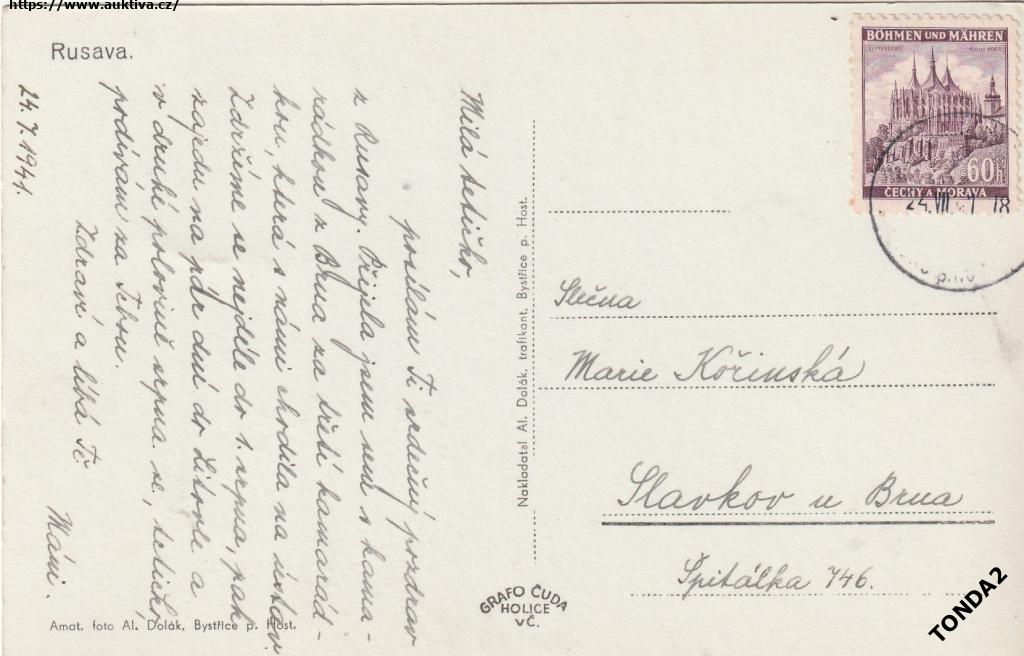 https://www.auktiva.cz/
Rusava.
24.7.1941.
Milá tetičko,
posílám Ti srdečný pozdrav
z Rusavy. Přijela jsem sem s kama-
rádkou z Brna za třetí kamarád-
kou, která s námi chodila na ústav.
Zdržíme se nejdéle do 1. srpna, pak
zajedu na pár dní do Litovle a
v druhé polovině srpna se, tetičko,
podívám za Tebou.
Zdraví a líbá Tě
Máni.
Amat. foto Al. Dolák, Bystřice p. Host.
Nakladatel Al. Dolák, trafikant, Bystřice p. Host.
GRAFO ČUDA
HOLICE
VČ.
BÖHMEN UND MÄHREN
KUTTENBERG KUTNÁ HORA
60h
ČECHY A MORAVA
24.VII.41 18
Slečna
Marie Kořinská
Slavkov u Brna
Špitálka 746.
TONDA2